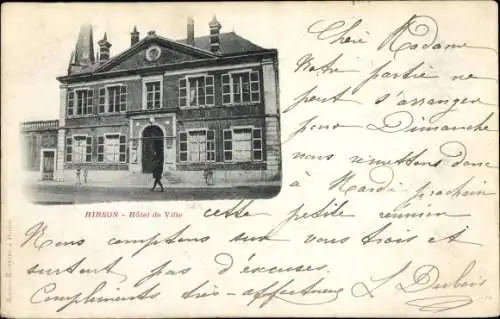 Chère Madame
Notre partie ne
peut s'arranger
pour Dimanche
nous remettons donc
à Mardi prochain
HIRSON - Hôtel de Ville
cette petite réunion
Nous comptons sur vous trois et
surtout pas d'excuses.
Compliments très-affectueux
L Dubois